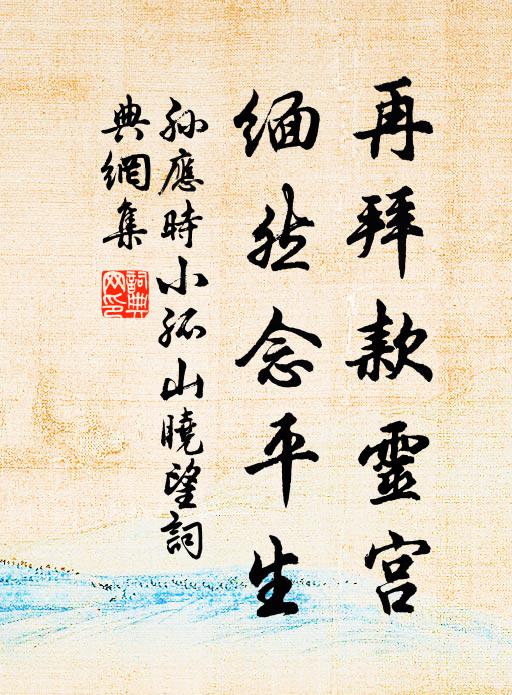 再拜款靈宮
緬然念平生
孫應時小孤山曉望詞
典網集
詞典網印